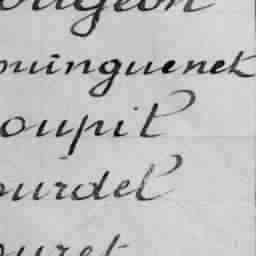 ougeon
ouinguenet
oupil
ourdel
ouret